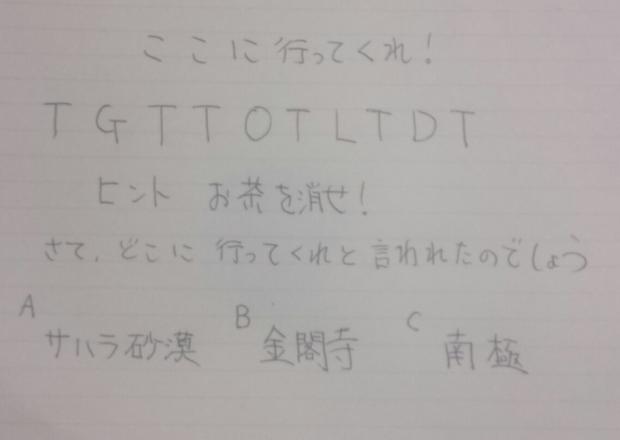 ここに行ってくれ!
TGTTOTLTDT
ヒント お茶を消せ!
さて、どこに行ってくれと言われたのでしょう
A サハラ砂漠 B 金閣寺 C 南極